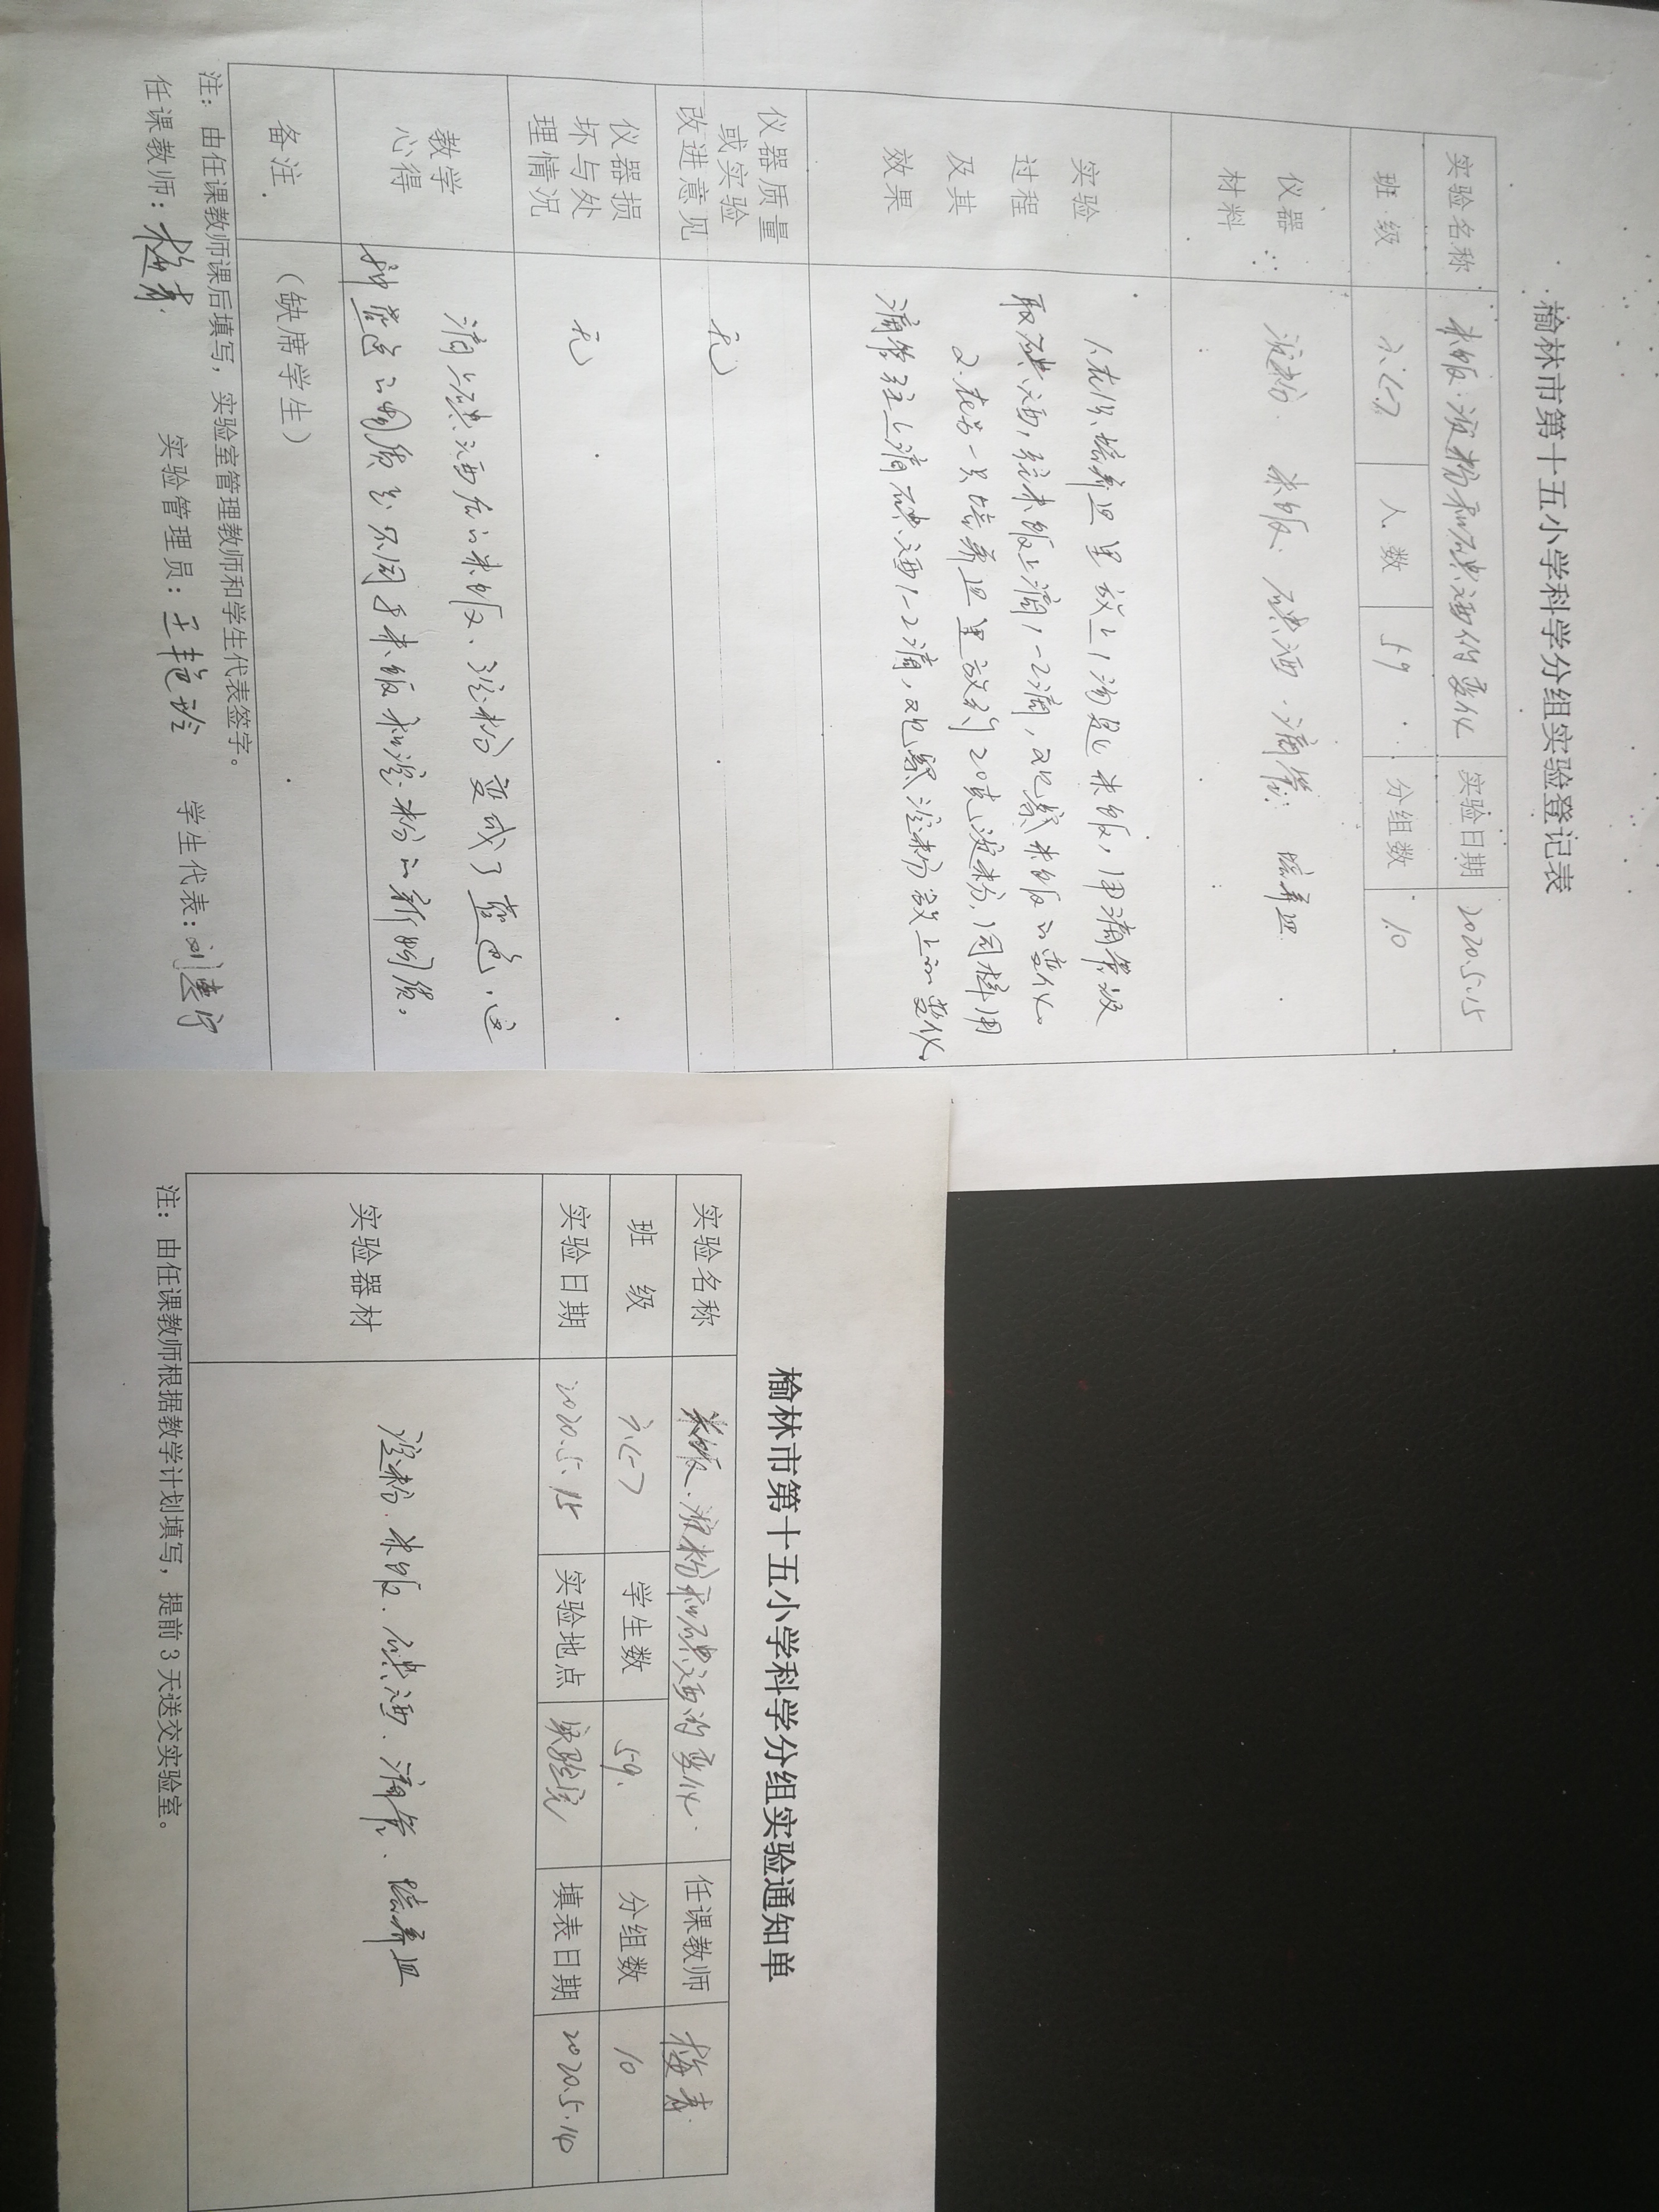 榆林市第十五小学科学分组实验登记表
实验名称 米饭、淀粉和碘酒的变化 实验日期 2020.5.15
班级 六 人数 59 分组数 10
仪器材料 淀粉、米饭、碘酒、滴管、培养皿
实验过程及其效果
1.在 培养皿里放上1 米饭,用滴管吸
取碘酒,往米饭上滴1-2滴,观察米饭的变化。
2.在另一只培养皿里放到20克淀粉,同样用
滴管往上滴碘酒1-2滴,观察淀粉 的变化。
仪器质量或实验改进意见 无
仪器损坏与处理情况 无
教学心得
滴上碘酒后的米饭、淀粉变成了蓝色,这
种蓝色的物质是不同于米饭和淀粉的新物质。
备注 (缺席学生)
注:由任课教师课后填写,实验室管理教师和学生代表签字。
任课教师: 实验管理员:王艳玲 学生代表:刘
榆林市第十五小学科学分组实验通知单
实验名称 米饭、淀粉和碘酒的变化 任课教师
班级 六 学生数 59 分组数 10
实验日期 2020.5.15 实验地点 实验室 填表日期 2020.5.14
实验器材 淀粉、米饭、碘酒、滴管、培养皿
注:由任课教师根据教学计划填写,提前3天送交实验室。